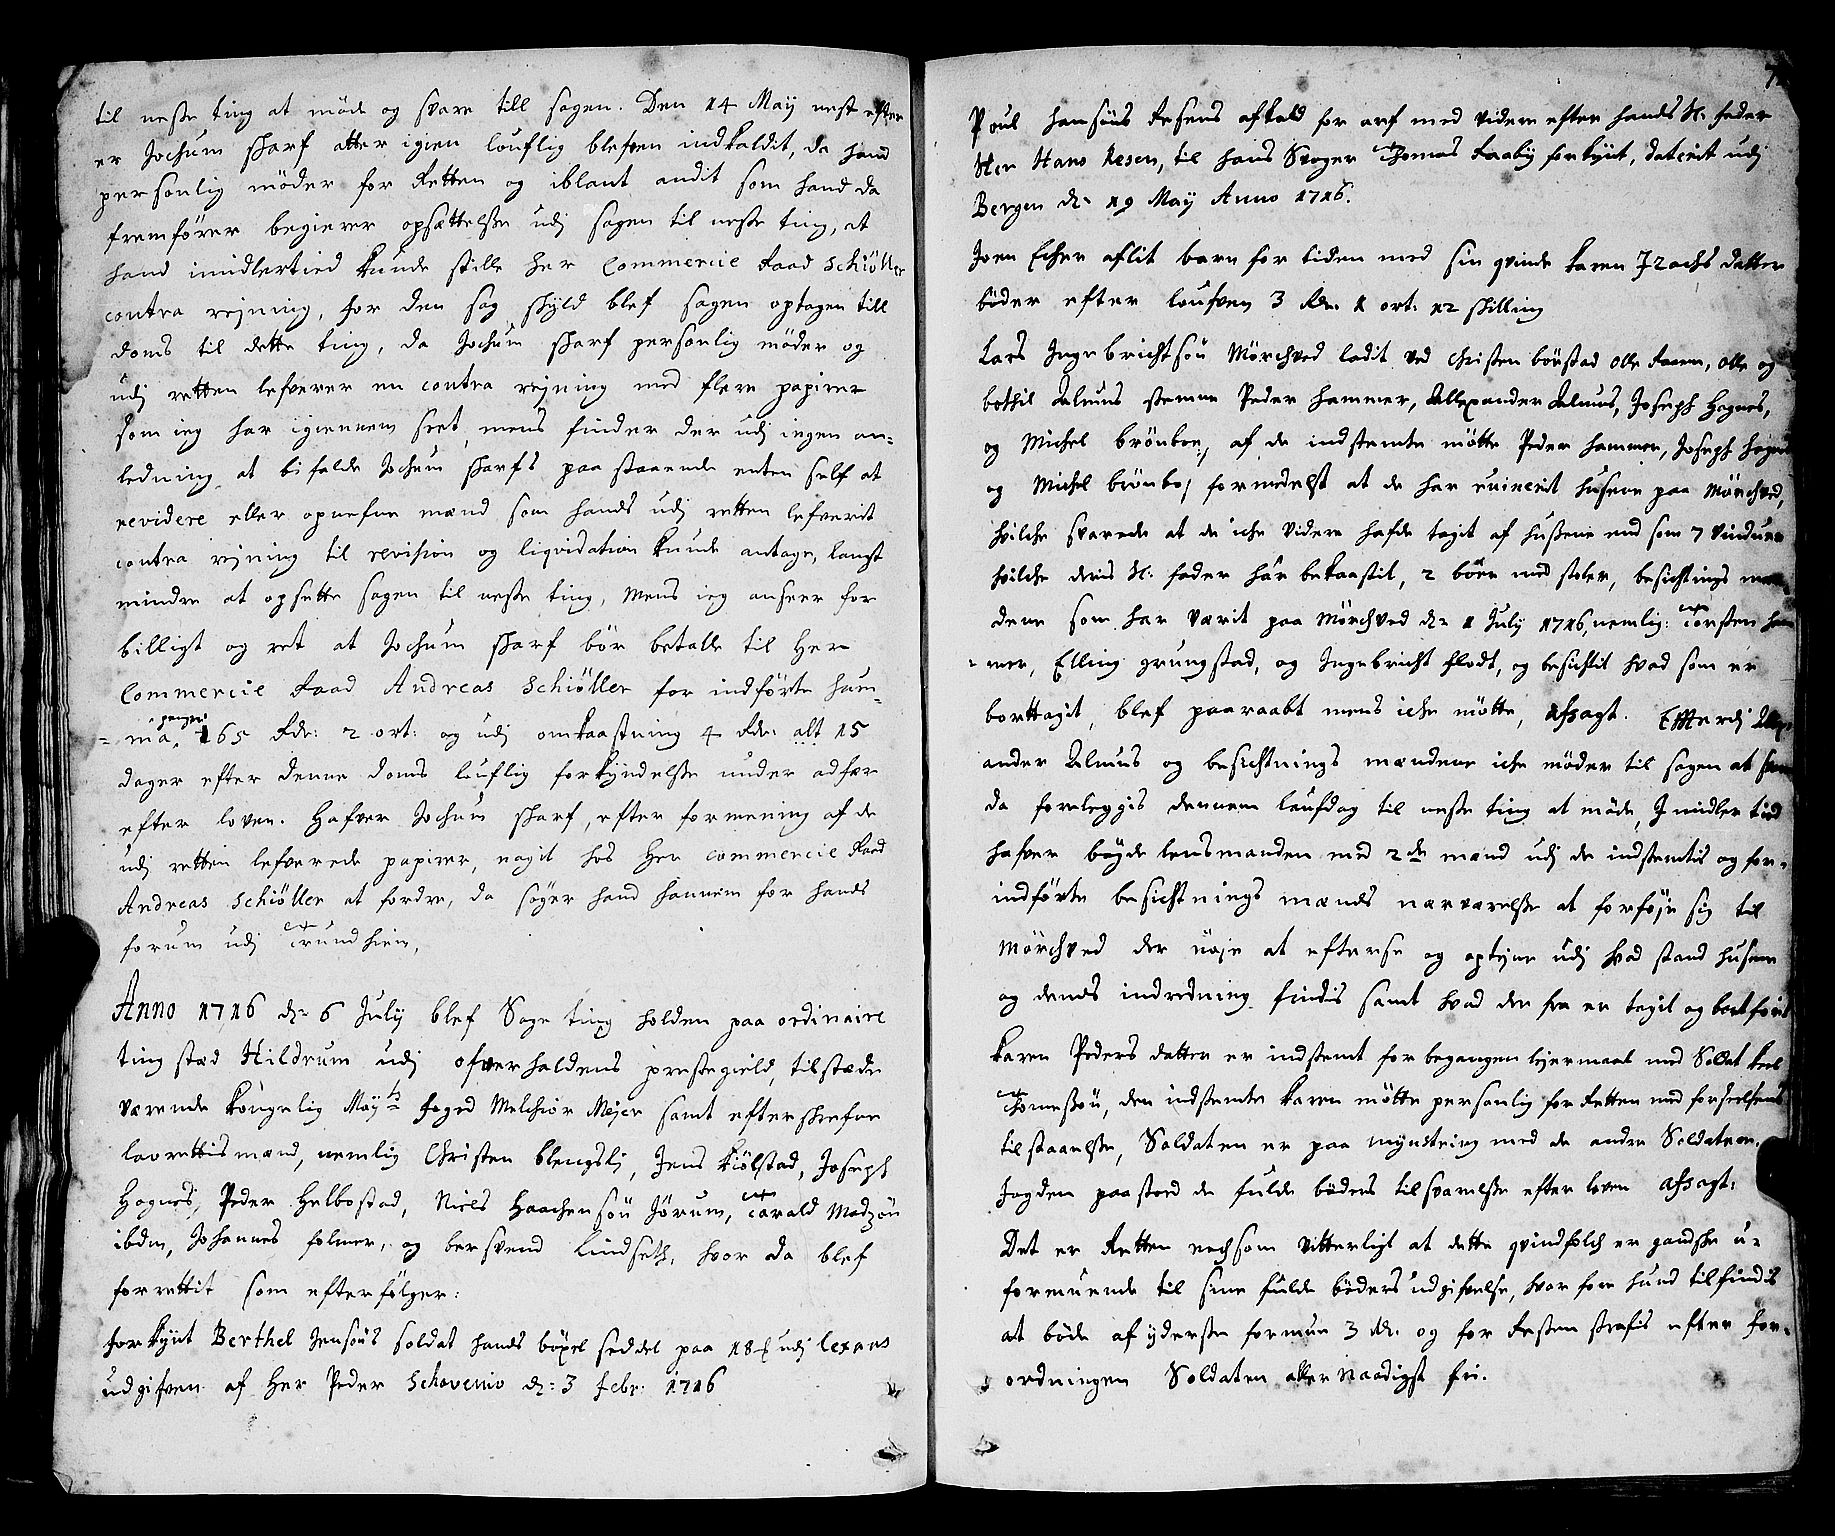 til neste ting at møde og svare till sagen. Den 14 May nest efter
er Jochum Skarf atter igien louflig blefven indkaldit, da hand
personlig møder for Retten og iblant andit som hand da
fremfører begierer opsættelsse udj sagen til neste ting, at
hand imidlertied kunde stille her Commercie Raad Schiøller
contra rejning, for den sag skyld blef sagen optagen till
doms til dette ting, da Jochum Skarf personlig møder og
udj retten lefverer en contra rejning med flere papirer
som ieg har igiennem seet, mens finder der udj ingen an-
ledning at bifalde Jochum Skarfs paastaaende enten self at
revidere eller opnefne mænd som hands udj retten lefverit
contra rejning til revision og liqvidation kunde antage, langt
mindre at opsette sagen til neste ting, Mens ieg anseer for
billigt og ret at Jochum Skarf bør betalle til Her
Commercie Raad Andreas Schiøller for indførte ham-
ma, penger 165 Rdr: 2 ort: og udj omkaastning 4 Rdr: alt 15
dager efter denne doms louflig forkyndelsse under adfær
efter loven. Hafver Jochum Skarf, efter formening af de
udj retten lefverede papirer, nogit hos Her Commercie Raad
Andreas Schiøller at fordre, da søger hand hannem for hands
forum udj Trundhiem,
Anno 1716 d: 6 July blef Sage ting holden paa ordinaire
ting stæd Hildrum udj ofverhaldens prestegield, tilstæde
værende kongelig Mayts foged Melchior Mejer samt efterskrefne
laurettismænd, nemlig Christen blengslj, Jens kiølstad, Joseph
Hagnes, Peder Helbostad, Niels Haachensøn Jørum, Tarald Madzøn
ibdm, Johannes folmer, og bersvend Lindseth, hvor da blef
forrettit som efterfølger:
forkynt Berthel Jensøns soldat hands bøxel seddel paa 18 udj Lexaas
udgifven af Her Peder Schavenio d: 3 febr: 1716
Poul Hansøns Resens afkald for arf med videre efter hands Sl. fader
Her Hans Resen, til hans Svoger Thomas Raabÿ forkynt, daterit udj
Bergen d: 19 May Anno 1716.
Joen Echer aflit barn for tiden med sin qvinde karen Izachs datter
bøder efter loufven 3 Rdr 1 ort: 12 skilling
Lars Ingebrichtsøn Mørchved ladit ved Christen børstad olle Faren, olle og
bothil Almus stemne Peder Hammer, Allexander Almus, Joseph Hagnes,
og Michel brønboe, af de indstemte møtte Peder Hammer, Joseph Hagnes
og Michel brønboe, formedelst at de har ruinerit husene paa Mørchved,
hvilche svarede at de iche videre hafde tagit af hussene end som 7 vinduer
hvilche deris Sl. fader har bekaastit, 2 børe med stoler, besichtings mæn-
dene som har værit paa Mørchved d: 1 July 1716, nemlig: Torsten ham
-mer, Elling grungstad, og Ingebricht flodt, og besichtit hvad som er
borttagit, blef paaraabt mens iche møtte, Afsagt. Efterdj Allex-
ander Almus og besichtnings mændene iche møder til sagen at svare
da foreleggis dennem laufdag til neste ting at møde, Imidlertied
hafver bøyde lensmanden med 2de mænd udj de indstemtis og for-
indførte besichtnings mænds nærværelsse at forføje sig til
Mørchved der nøje at efterse og optejne udj hvad stand husene
og dends indredning findis samt hvad der fra er tagit og bortført
Karen Peders datter er indstemt for begangen lejermaal med Soldat Keel
Tomessøn, den indstemte Karen møtte personlig for Retten med forseelsens
tilstaaelsse, Soldaten er paa mynstring med de andre Soldatere.
fogden paastod de fulde bøders tilsvarelsse efter loven Afsagt:
Det er Retten nochsom vitterligt at dette qvindfolch er gandske u-
formuende til sine fulde bøders udgifvelse, hvor fore hund tilfindis
at bøde af yderste formue 3 Rdr. og for Resten strafis efter for-
ordningen Soldaten aller Naadigst fri.